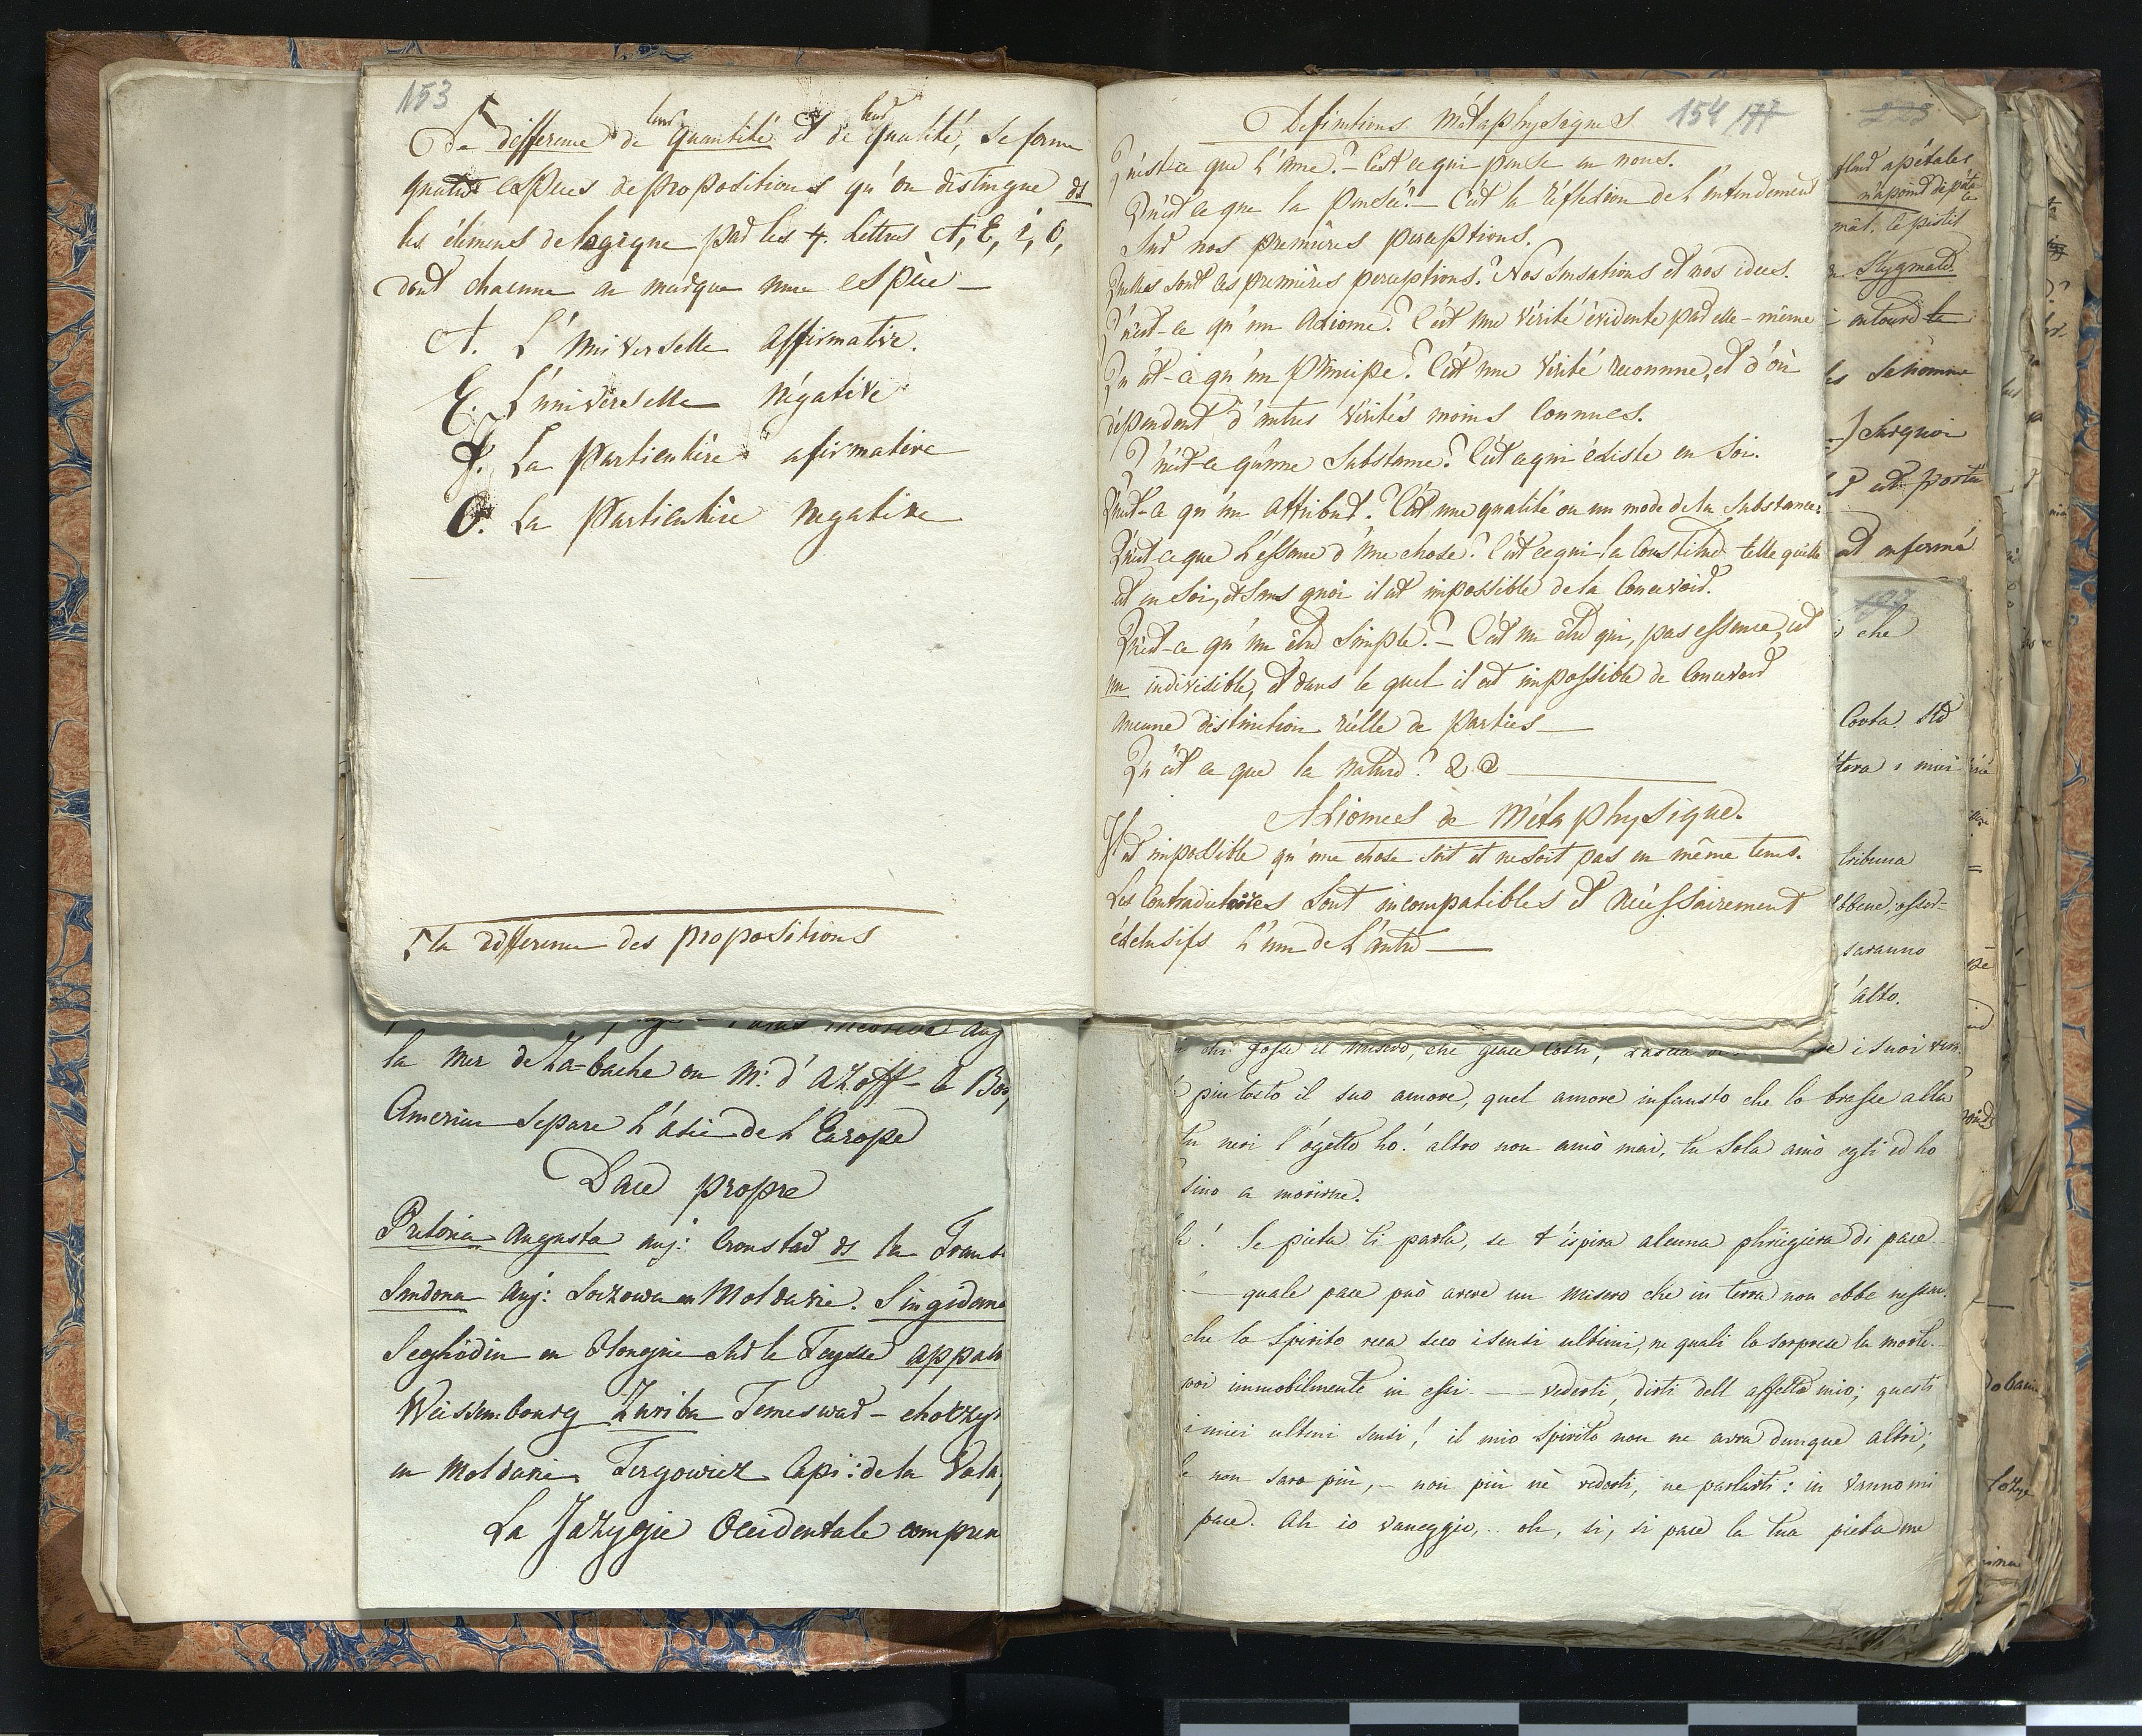 153
De difference de leur quantité et de leur qualité, se forme
quatre espèces de propositions qu'on distingue ds
les élémens de logique par les 4. lettres A, E, i, O,
dont chacune en marque une espèce —
A. L'universelle affirmative.
E. L'universelle négative
I. La particulière afirmative
O. La particulière negative
la difference des propositions
la mer de Za-bache ou M. d'Azoff - le Bos
Cimerien separe l'Asie de l'Europe
Dace propre
Pretoria Augusta auj: Cronstad ds la Trans
Sandona auj: Soczowa en Moldavie. Singidana
Seghédin en Hongrie sur le Teysse appan
Weissembourg Zuriba Temeswar - choczy
en Moldavie Tergowicz Capi: de la Vala
La Jazygie Occidentale compren
Définitions métaphysiques 154 177
Qu'est-ce que l'ame? - C'est ce qui pense en nous.
Qu'est ce que la pensée? - C'est la réflexion de l'entendement
sur nos premières perceptions.
Quelles sont ces premières perceptions? Nos sensations et nos idées.
Qu'est-ce qu'un axiome? C'est une vérité évidente par elle-même
Qu'est-ce qu'un Principe? C'est une vérité reconnue, et d'où
dépendent d'autres vérités moins connues.
Qu'est-ce qu'une substance? C'est ce qui éxiste en soi.
Qu'est-ce qu'un attribut? C'est une qualité ou un mode de la substance.
Qu'est ce que l'essence d'une chose? C'est ce qui la constitue telle qu'elle
est en soi, et sans quoi il est impossible de la concevoir.
Qu'est-ce qu'un être simple? - C'est un être qui, par essence, est
un indivisible, et dans le quel il est impossible de concevoir
aucune distinction réelle de parties —
Qu'est ce que la nature?
Axiomes de métaphysique.
Il est impossible qu'une chose soit et ne soit pas en même tems.
Les contradictoires sont incompatibles et nécessairement
éxclusifs l'un de l'autre —
223
fleur apétales
n'a point de péta
mât. le pistil
Stygmate
entoure le
les se nomme
surquoi
est porté
est enfermé
197
che
tribuna
saranno
alto.
chi fosse il misero, che giace costi, i suoi
piu tosto il suo amore, quel amore infausto che lo trasse alla
tu neri l'ogetto ho! altro non amò mai, tu sola amò egli ed ho
sino a morirne.
Se pieta ti parla, se t'ispira alcuna phriegiera di pace
quale pace può avere un misero che in terra non ebbe nessun.
che lo spirito reca seco i sensi ultimi, ne quali lo sorprese la morte.
poi immobilmente in essi — vederti, dirti dell affetto mio; questi
i miei ultimi sensi! il mio spirito non ne avra dunque altri;
non saro più, - non più nè vederti, ne parlarti: in vanno mi
pace. Ah io vaneggio, .. oh, si, si pace la tua pieta me